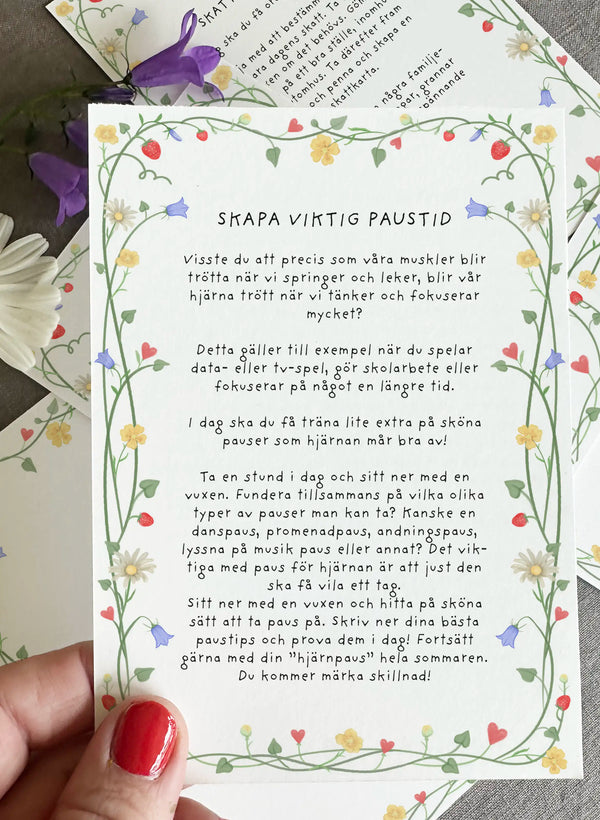 SKATT
ska du få
ja med att bestämm
ara dagens skatt. Ta
en om det behövs. Göm
på ett bra ställe, inomhus
tomhus. Ta därefter fram
och penna och skapa en
skattkarta.
några familje-
par, grannar
spännande
SKAPA VIKTIG PAUSTID
Visste du att precis som våra muskler blir
trötta när vi springer och leker, blir vår
hjärna trött när vi tänker och fokuserar
mycket?
Detta gäller till exempel när du spelar
data- eller tv-spel, gör skolarbete eller
fokuserar på något en längre tid.
I dag ska du få träna lite extra på sköna
pauser som hjärnan mår bra av!
Ta en stund i dag och sitt ner med en
vuxen. Fundera tillsammans på vilka olika
typer av pauser man kan ta? Kanske en
danspaus, promenadpaus, andningspaus,
lyssna på musik paus eller annat? Det vik-
tiga med paus för hjärnan är att just den
ska få vila ett tag.
Sitt ner med en vuxen och hitta på sköna
sätt att ta paus på. Skriv ner dina bästa
paustips och prova dem i dag! Fortsätt
gärna med din ”hjärnpaus” hela sommaren.
Du kommer märka skillnad!